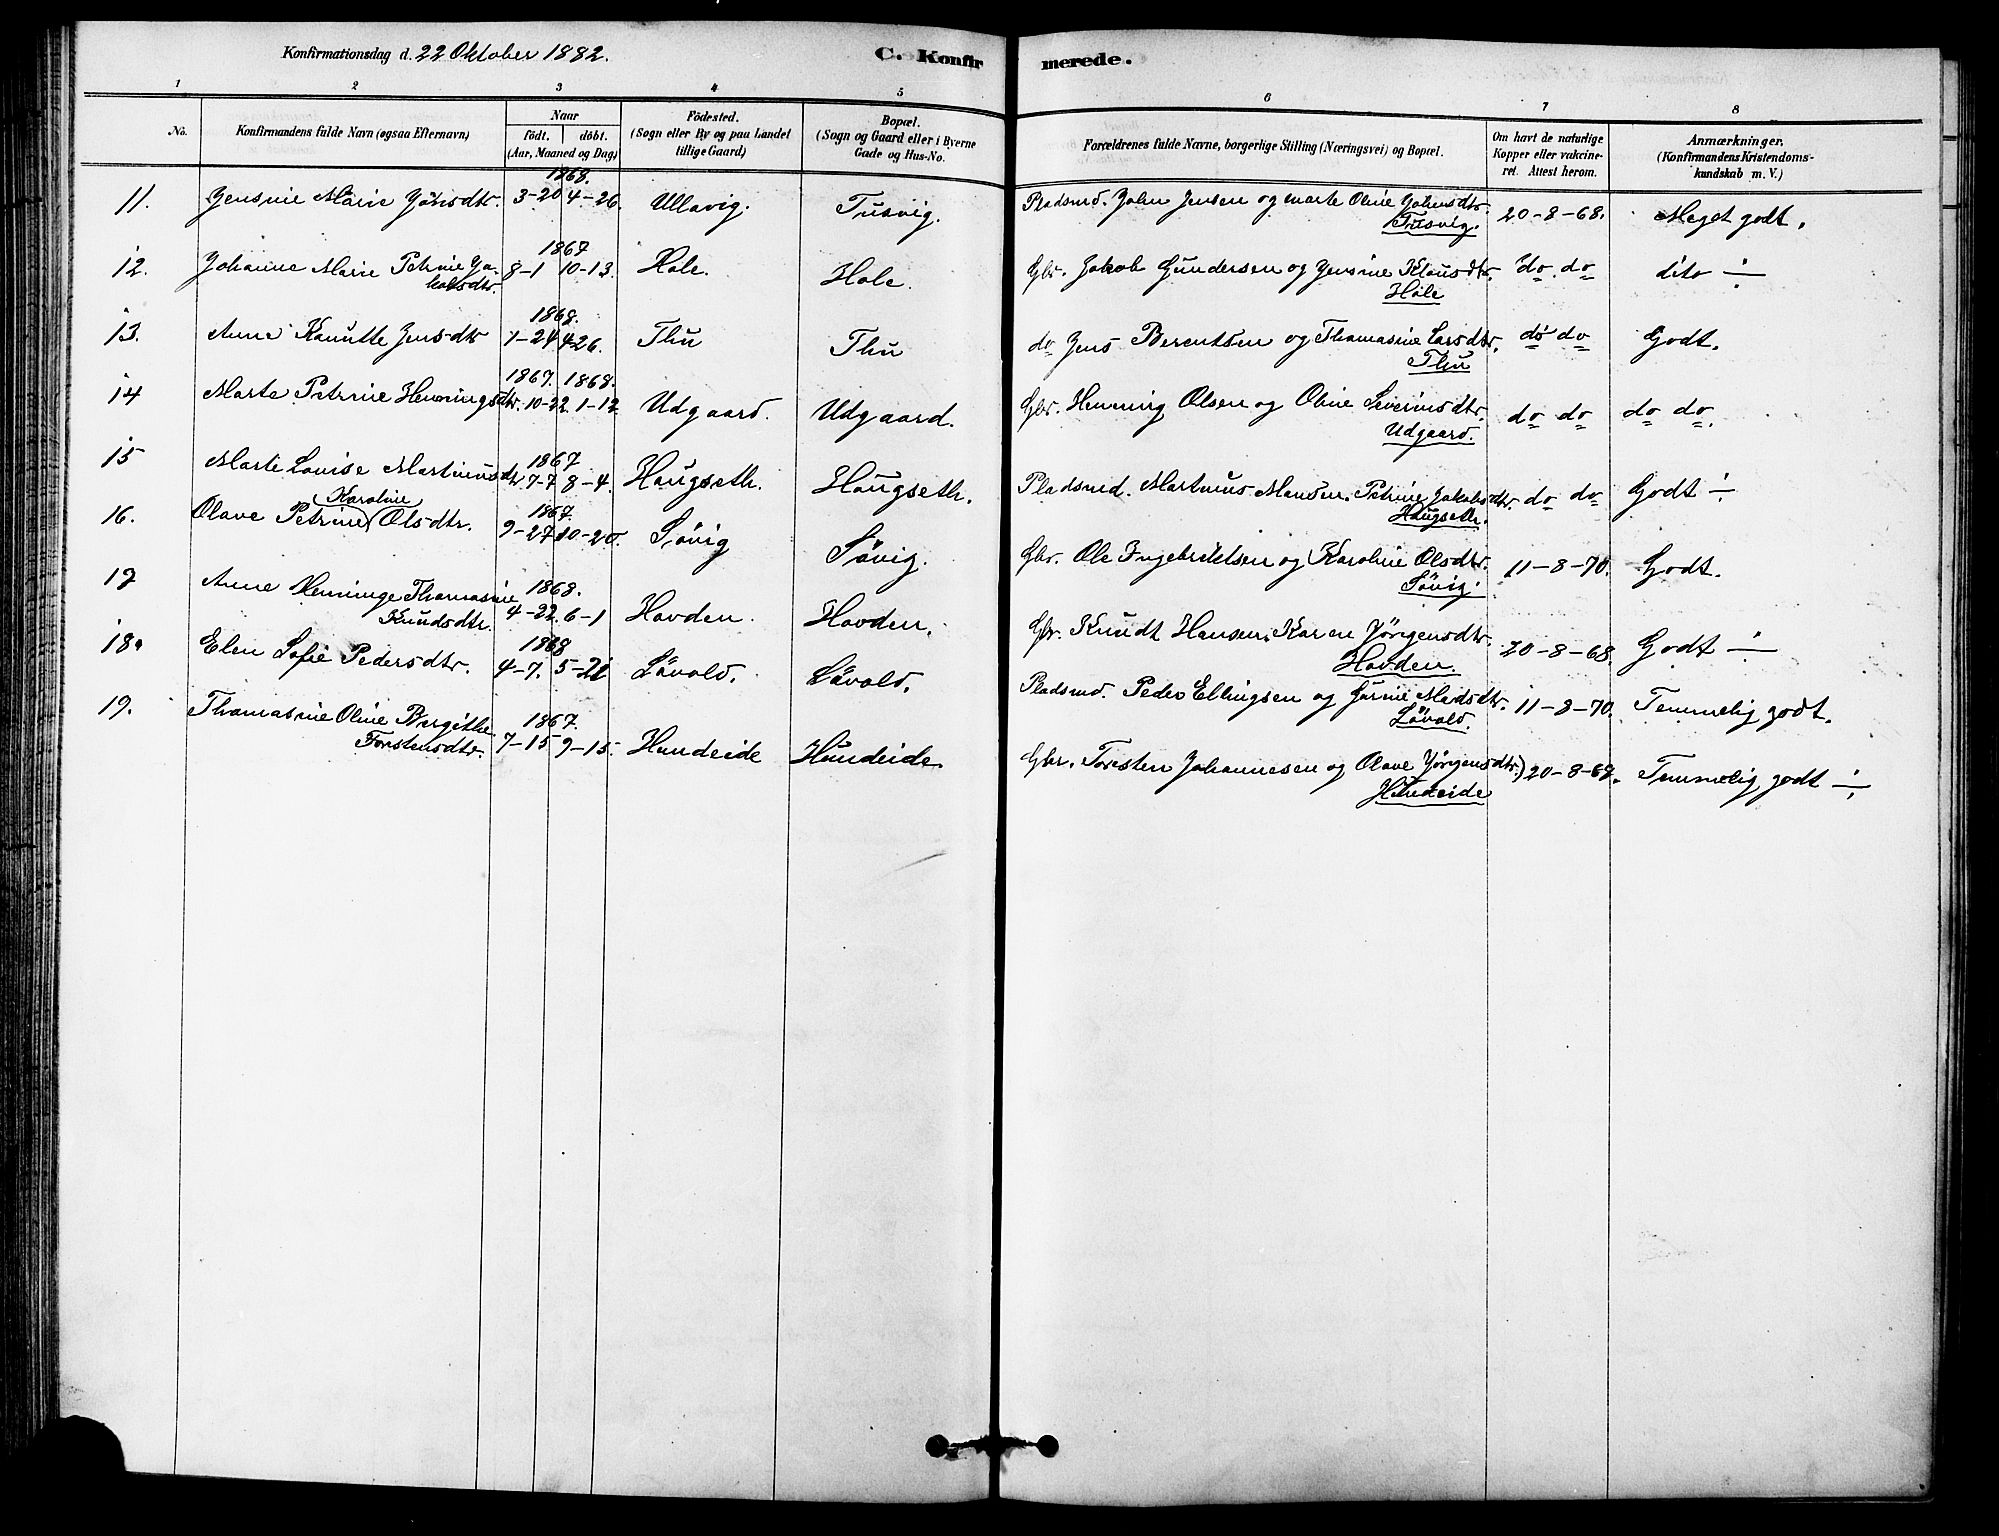 Konfirmationsdag d. 22 Oktober 1882.
C. Konfirmerede.
1 2 3 4 5 6 7 8
No.
Konfirmandens fulde Navn (ogsaa Efternavn)
Naar
födt. döbt.
(Aar, Maaned og Dag)
Födested.
(Sogn eller By og paa Landet
tillige Gaard)
Bopæl.
(Sogn og Gaard eller i Byerne
Gade og Hus-No.
Forældrenes fulde Navne, borgerlige Stilling (Næringsvei) og Bopæl.
Om havt de naturlige
Kopper eller vakcine-
ret. Attest herom.
Anmærkninger.
(Konfirmandens Kristendoms-
kundskab m. V.)
1868.
11. Jensine Marie Jönsdtr. 3-20 4-26. Ullavig. Tusvig. Pladsmd. John Jensen og Marte Oline Johnsdtr. 20-8-68. Meget godt.
Tusvig.
1867
12. Johanne Marie Petrine Ja- 8-1 10-13. Hole. Hole. Gbr. Jakob Gundersen og Jensine Klausdtr. do. do dito ÷
kobsdtr. Hole
1868.
13. Anne Knutte Jensdtr 1-24 4-26. Thu Thu do Jens Berentsen og Thomasine Larsdtr. do do Godt.
Thu
1867. 1868.
14 Marte Petrine Henningsdtr. 10-22. 1-12 Udgaard. Udgaard. Gbr. Henning Olsen og Oline Severinsdtr. do do do do.
Udgaard.
1867
15 Marte Lovise Martinusdtr 7-7 8-4. Haugseth. Haugseth. Pladsmd. Martinus Monsen. Petrine Jakobsdtr. do do Godt ÷
Haugseth.
Karoline 1867.
16. Olave Petrine Olsdtr. 9-27 10-20. Sövig Sövig. Gbr. Ole Ingebriktsen og Karoline Olsdtr. 11-8-70. Godt.
Sövig.
1868.
17 Anne Henninge Thomasine 4-22. 6-1 Hovden. Hovden. Gbr. Knudt Hansen. Karen Jörgensdtr. 20-8-68. Godt ÷
Knudsdtr. Hovden.
1868
18. Elen Sofie Pedersdtr. 4-7. 5-21 Lövold. Lövold. Pladsmd. Peder Ellingsen og Madsdtr. 11-8-70. Temmelig godt.
Lövold.
1867.
19. Thomasine Oline Birgithe 7-15 9-15. Hundeide Hundeide. Gbr. Torsten Johannesen og Olave Jörgensdtr.) 20-8-68. Temmelig godt ÷
Torstensdtr. Hundeide